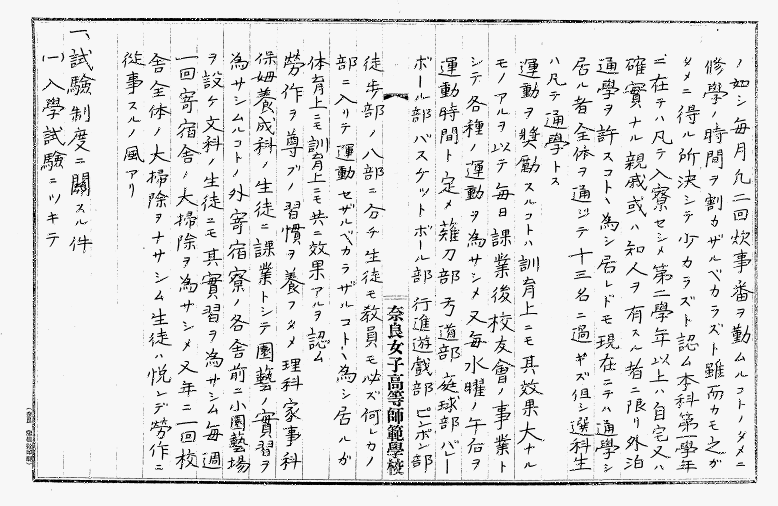 ノ如シ每月凡二回炊事番ヲ勤ムルコトノタメニ
修學ノ時間ヲ割カザルベカラズト雖而カモ之ガ
タメニ得ル所決シテ少カラズト認ム本科第一學年
ニ在テハ凡テ入寮セシメ第二學年以上ハ自宅又ハ
確實ナル親戚或ハ知人ヲ有スル者ニ限リ外泊
通學ヲ許スコトヽ為シ居レドモ現在ニテハ通學シ
居ル者全体ヲ通ジテ十三名ニ過ギズ但シ選科生
ハ凡テ通學トス
運動ヲ獎勵スルコトハ訓育上ニモ其效果大ナル
モノアルヲ以テ每日課業後校友會ノ事業ト
シテ各種ノ運動ヲ為サシメ又每水曜ノ午后ヲ
運動時間ト定メ薙刀部弓道部庭球部バレー
ボール部バスケットボール部行進遊戲部ピンポン部
奈良女子高等師範學校
徒歩部ノ八部ニ分チ生徒モ敎員モ必ズ何レカノ
部ニ入リテ運動セザルベカラザルコトヽ為シ居ルガ
体育上ニモ訓育上ニモ共ニ效果アルヲ認ム
勞作ヲ尊ブノ習慣ヲ養フタメ理科家事科
保姆養成科ノ生徒ニ課業トシテ園藝ノ實習ヲ
為サシムルコトノ外寄宿寮ノ各舎前ニ小園藝場
ヲ設ケ文科ノ生徒ニモ其實習ヲ為サシム每週
一回寄宿舎ノ大掃除ヲ為サシメ又年ニ一回校
舎全体ノ大掃除ヲナサシム生徒ハ悦ンデ勞作ニ
從事スルノ風アリ
一、試驗制度ニ關スル件
(一)入學試驗ニツキテ